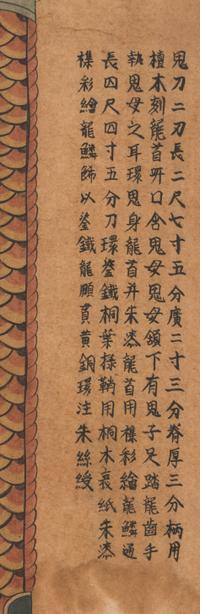 鬼刀二刃長二尺七寸五分廣二寸三分脊厚三分柄用
檀木刻龍首呀口含鬼母鬼母頷下有鬼子足踏龍齒手
執鬼母之耳環鬼身龍首并朱漆龍首用様彩繪龍鱗通
長四尺四寸五分刀環鎣鐵桐葉様鞘用桐木裹紙朱漆
様彩繪龍鱗飾以鎣鐵龍願貫黄銅環注朱絲綬